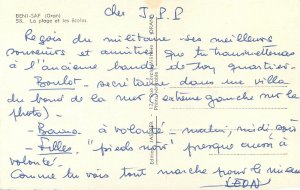 BENI-SAF (Oran)
58. La plage et les écoles
cher J.P.P
Reçois du militaire ses meilleurs
souvenirs et amitiés que tu transmettras
à l'ancienne bande de ton quartier.
Boulot - secrétaire dans une villa
du bord de la mer (extrême gauche sur la
photo) -
à volonté - matin, midi, soir
- Filles - "pieds noirs" presque aussi à
volonté -
Comme tu vois tout marche pour le mieux
LEON